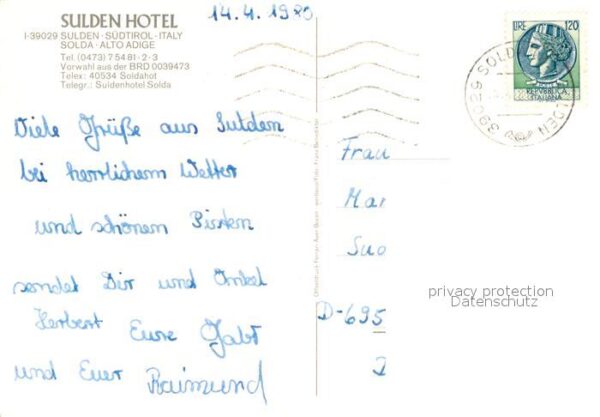 SULDEN HOTEL
I-39029 SULDEN · SÜDTIROL · ITALY
SOLDA · ALTO ADIGE
Tel. (0473) 7 54 81 - 2 - 3
Vorwahl aus der BRD 0039473
Telex: 40534 Soldahot
Telegr.: Suldenhotel Solda
14.4.1980
LIRE 120
REPVBBLICA
ITALIANA
Viele Grüße aus Sulden
bei herrlichem Wetter
und schönen Pisten
sendet Dir und Onkel
Herbert Eure Gabi
und Euer Raimund
Frau
Mar
Suo
D-695
privacy protection
Datenschutz